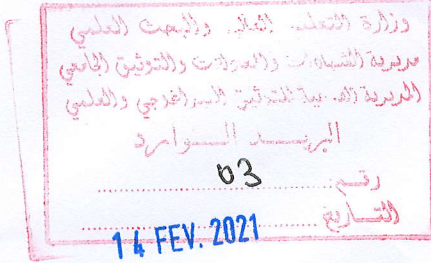 وزارة التعليم العالي والبحث العلمي
مديرية الشهادات والمعادلات والتوثيق الجامعي
المديرية الفرعية للتوثيق البيداغوجي والعلمي
البريد الوارد
رقم: 03
التاريخ 14 FEV. 2021